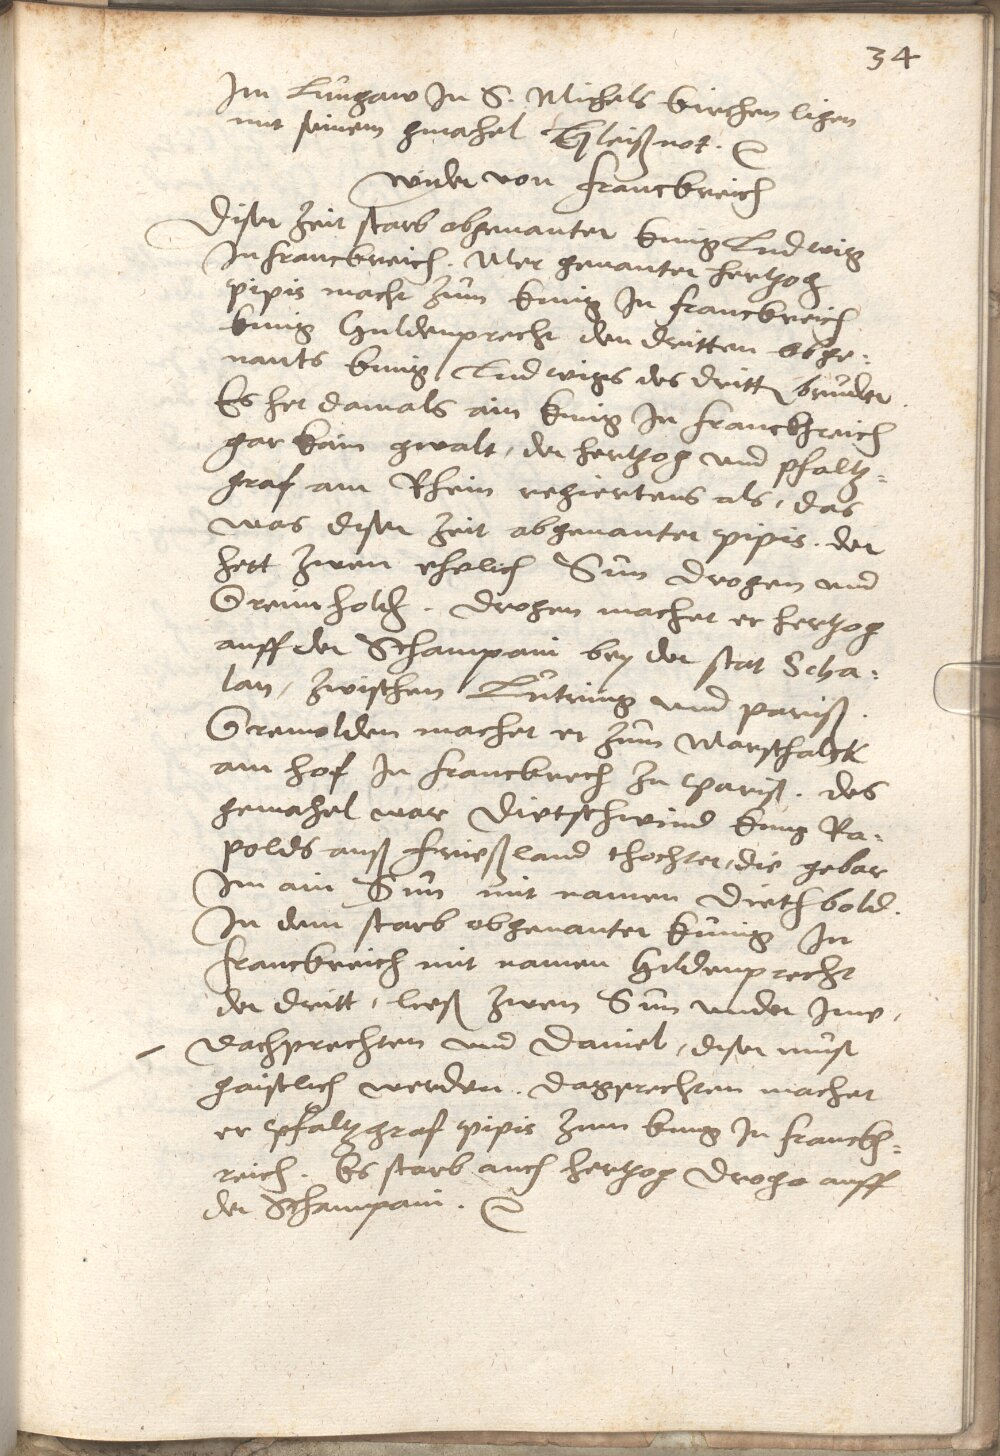 34
Im Lungaw In S. Michels kirchen ligen
mit seinem gmahel Gleißnot.
wider von franckreich
Diser Zeit starb obgenanter kunig Ludwig
In franckreich. Aber genanter hertzog
pipis macht zum kunig In franckreich
kunig Huldenprecht den dritten obge:
nants kunig Ludwigs des dritt bruder.
Es het damals ain kunig In franckhreich
gar kain gwalt, der hertzog und pfaltz:
graf am Rhein regiertens als, das
was diser Zeit obgenanter pipis. der
hett zwen ehelich Sun drogen und
Greimhold. drogen machet er hertzog
auff der Schampani bey der stat Scha:
lan, zwischen Lutring und pariß.
Gremolden machet er zum Marschalck
am hof In franckrech zu pariß. des
gemahel war dietschwind kung Ra:
polds auß frießland thochter, die gebar
Im ain Sun mit namen diethbold.
In dem starb obgenanter kunig In
franckreich mit namen Hildenprecht
der dritt, ließ zwen Sun under Ime,
dachprechten und Daniel, diser must
gaistlich werden. dagprechten machet
er pfaltzgraf pipis zum kunig In franckh:
reich. Es starb auch hertzog drogo auff
der Schampani.